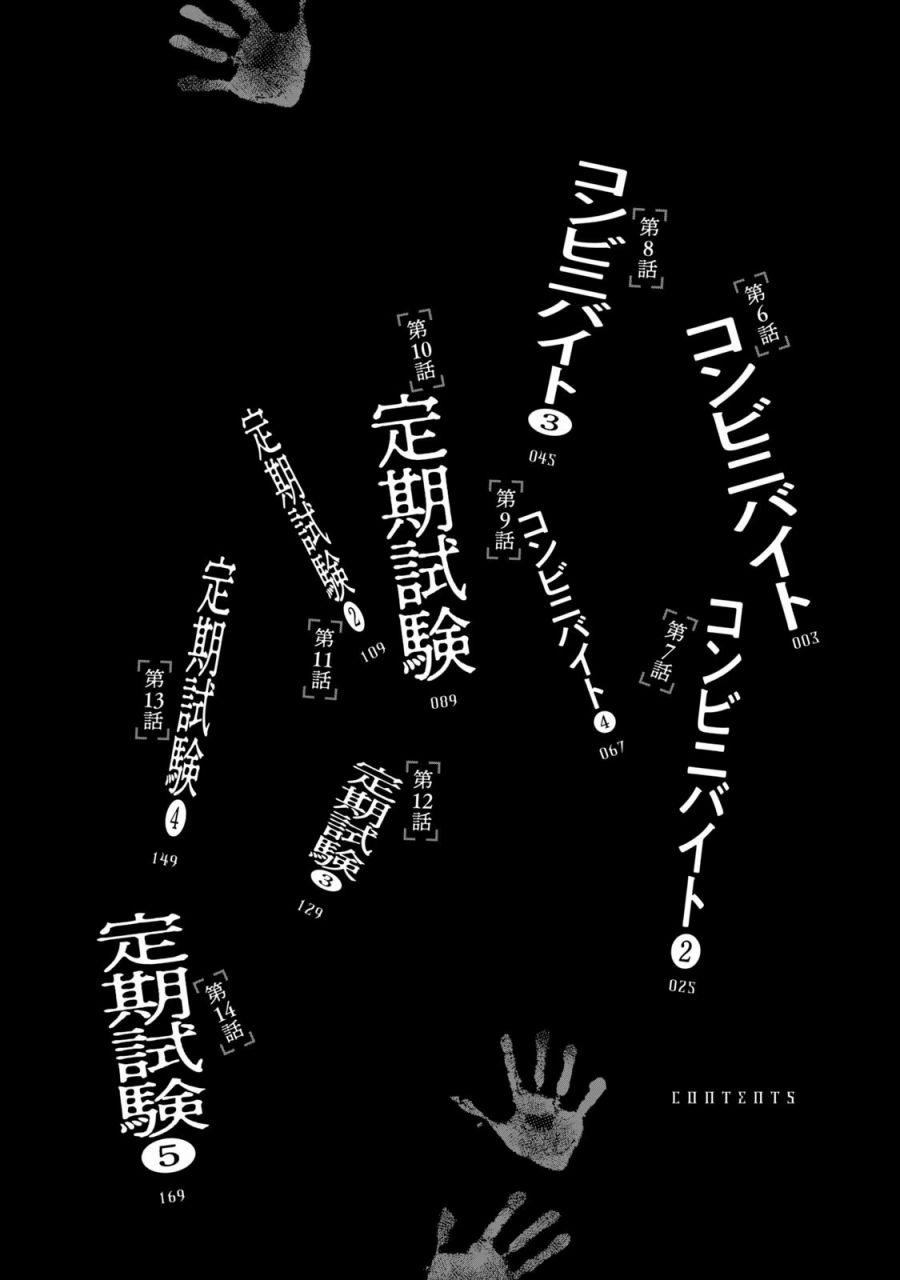 第6話
コンビニバイト
003
第7話
コンビニバイト❷
025
第8話
コンビニバイト❸
045
第9話
コンビニバイト❹
067
第10話
定期試験
089
第11話
定期試験❷
109
第12話
定期試験❸
129
第13話
定期試験❹
149
第14話
定期試験❺
169
CONTENTS